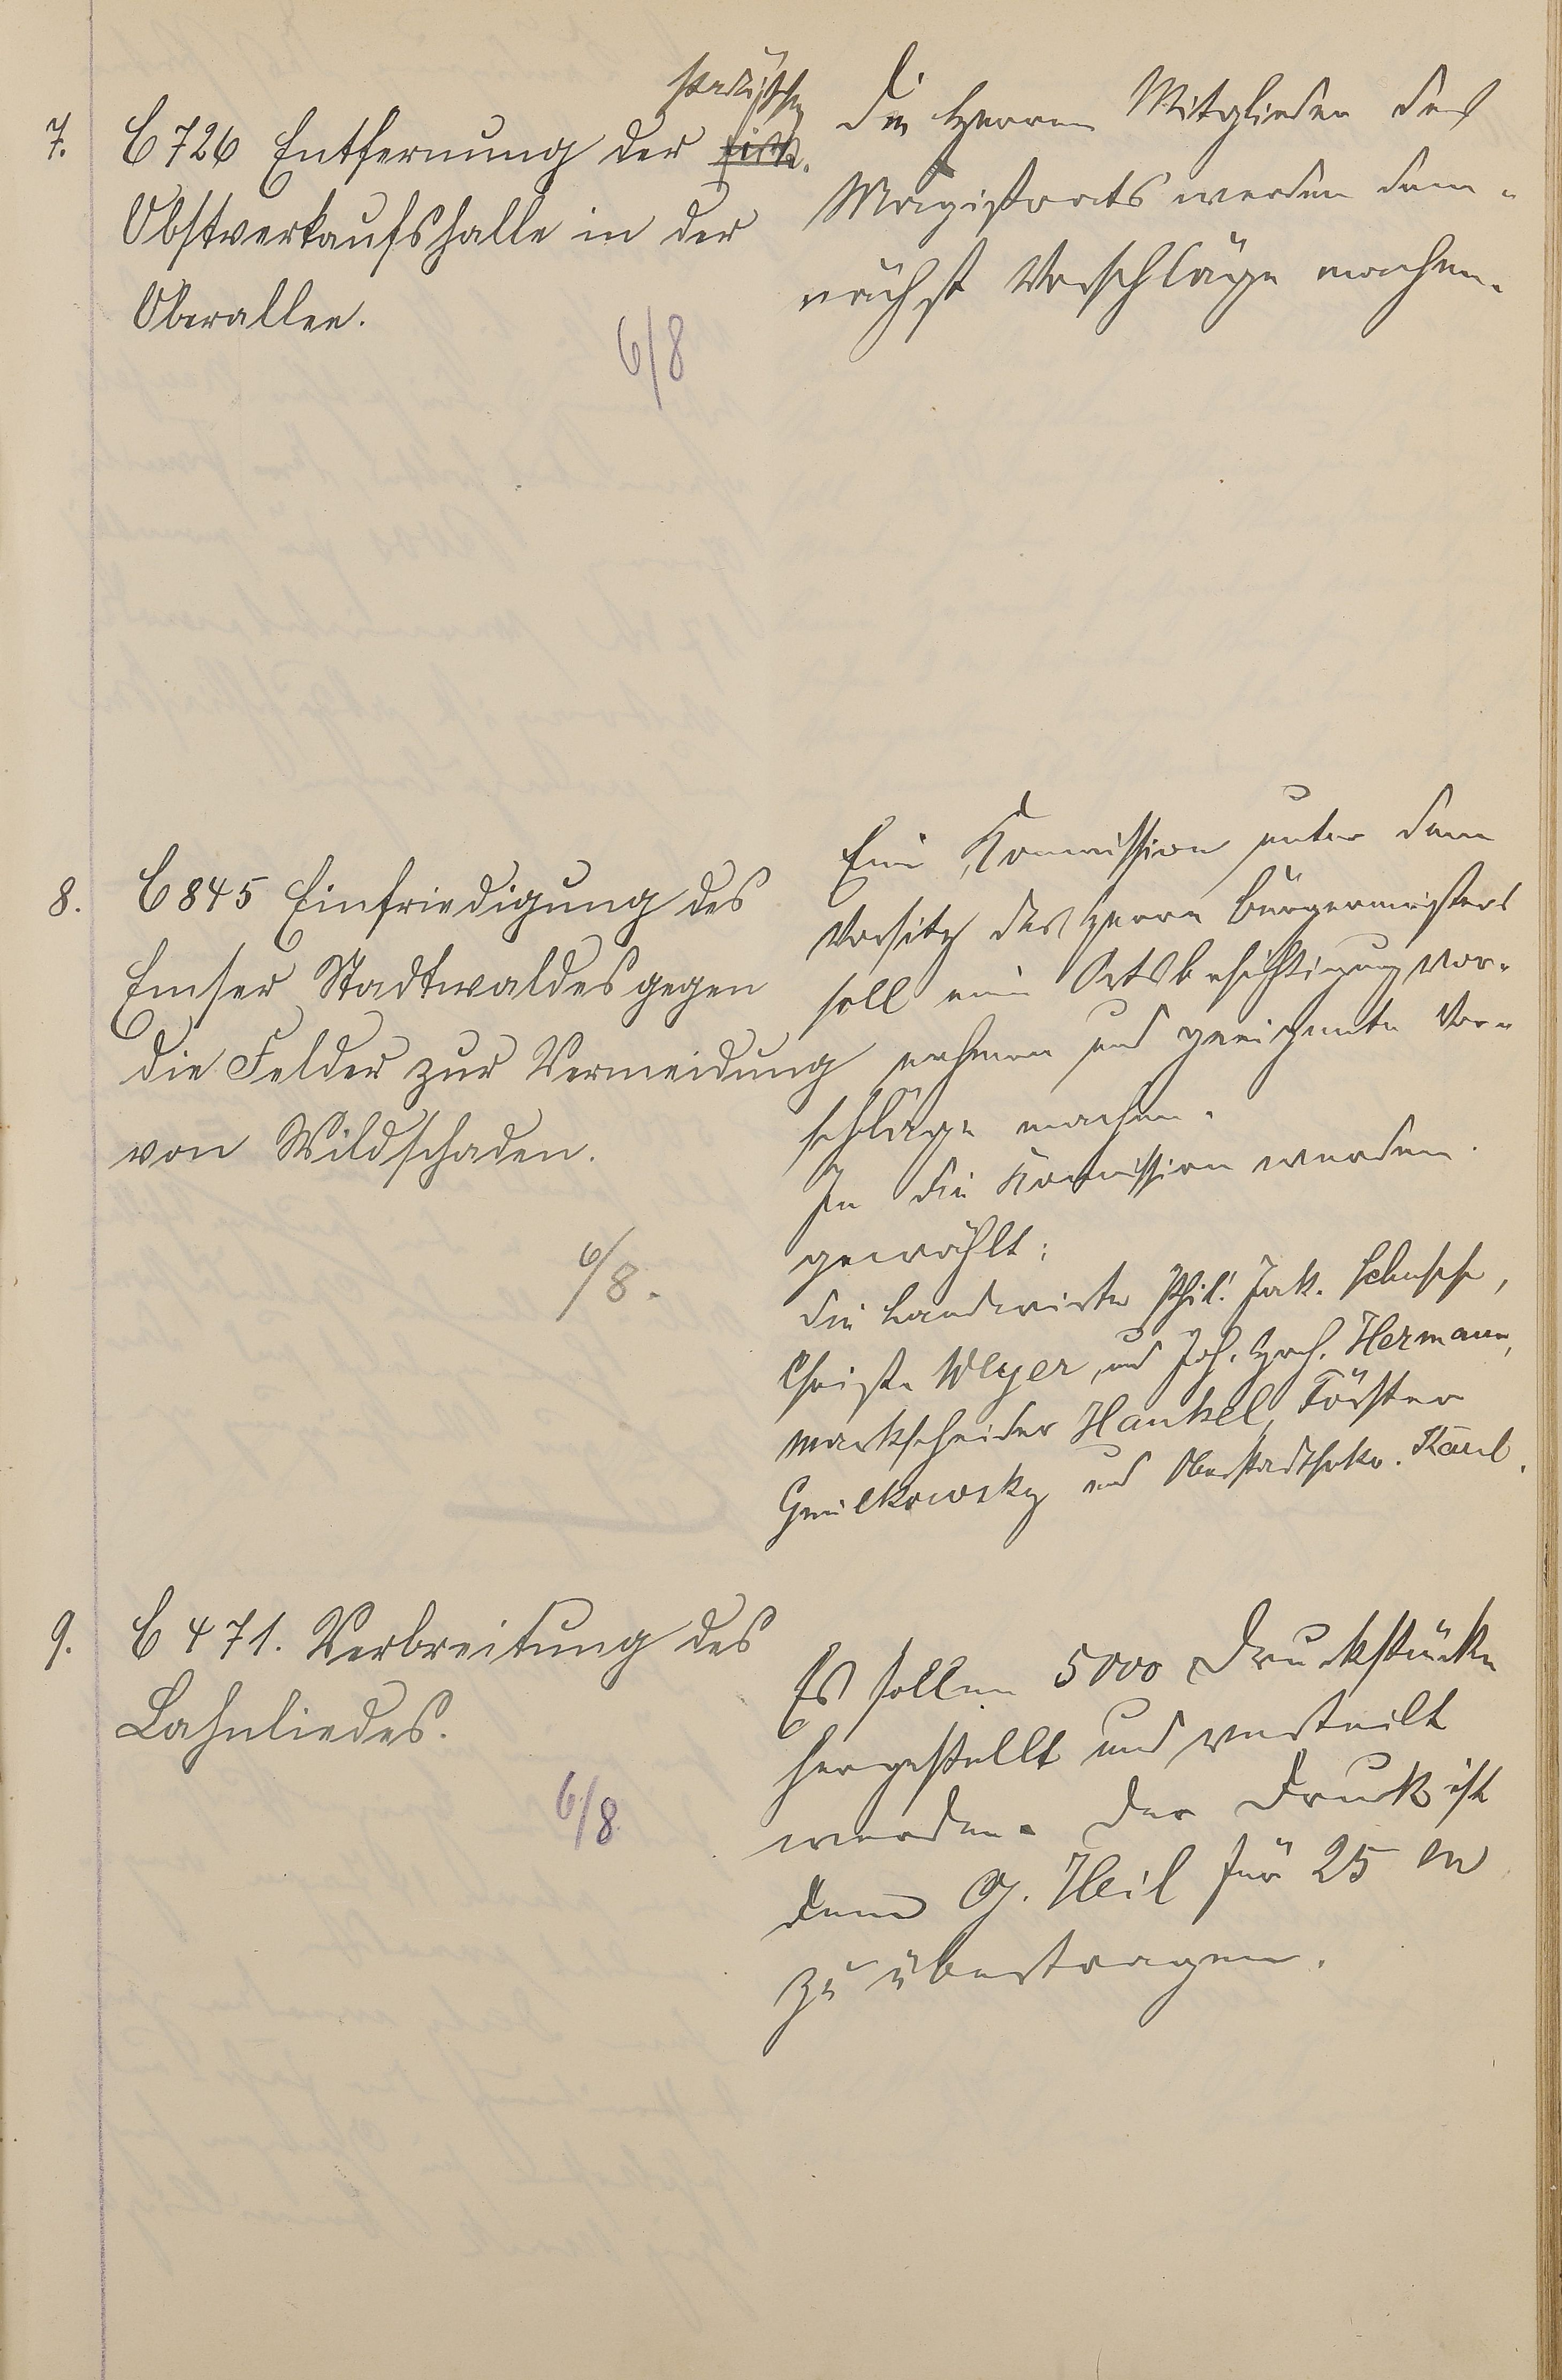 7.
C 726 Entfernung der städtischen fisk.
Obstverkaufshalle in der
Oberallee.
6/8
Die Herren Mitglieder des
Magistrats werden dem-
nächst Vorschläge machen.
8.
C 845 Einfriedigung des
Emser Stadtwaldes gegen
die Felder zur Vermeidung
von Wildschaden.
6/8.
Eine Kommission unter dem
Vorsitz des Herrn Bürgermeisters
soll eine Ortsbesichtigung vor-
nehmen und geeignete Vor-
schläge machen.
In die Kommission werden
gewählt:
die Landwirte Phil. Jak.
Christ. Weyer und Joh. Hermann,
Markscheider Hankel, Förster
und Oberstadtsekr. Kaul.
9.
C 471. Verbreitung des
Lahnliedes.
6/8
Es sollen 5000 Druckstücke
hergestellt und verteilt
werden. Der Druck ist
dem G. Heil für 25 M
zu übertragen.